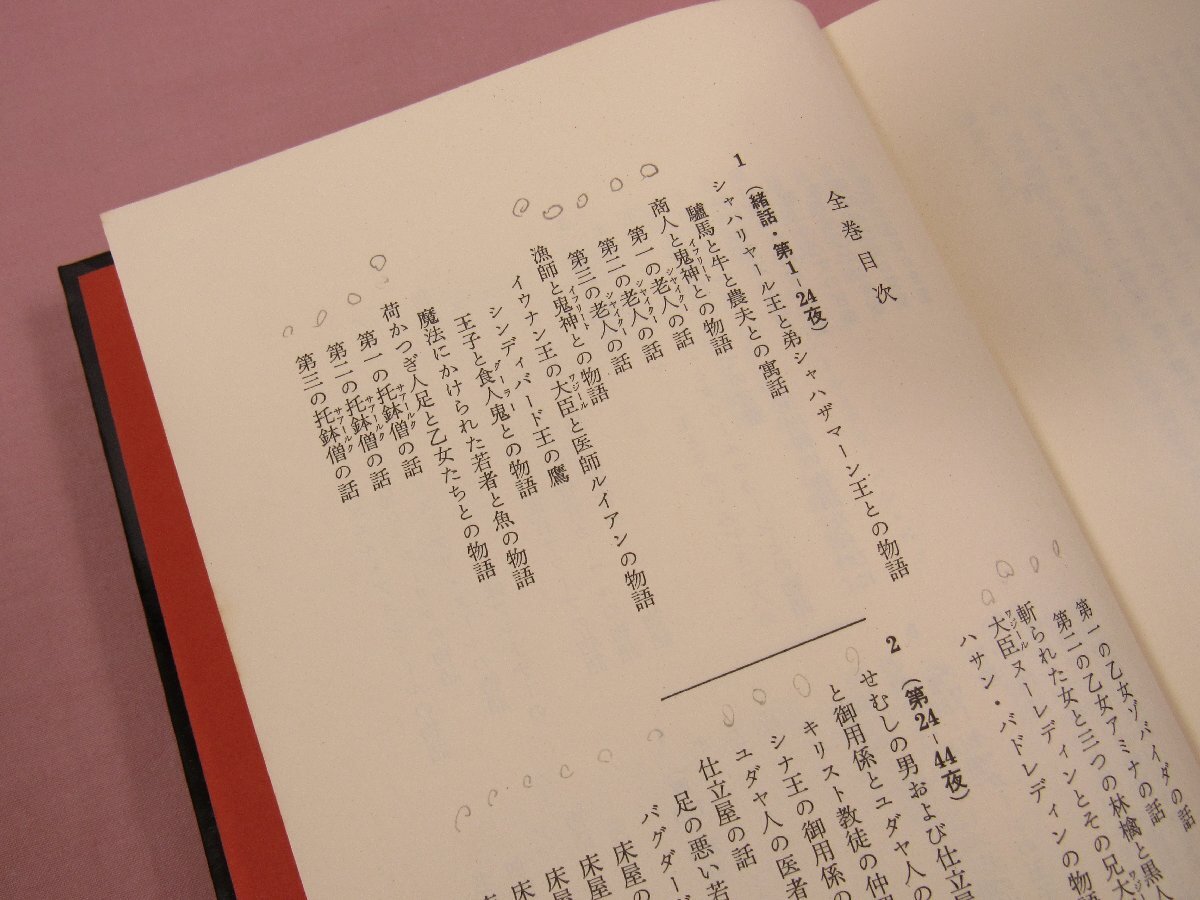 全巻目次
1（緒話・第1-24夜）
シャハリヤール王と弟シャハザマーン王との物語
驢馬と牛と農夫との寓話
商人と鬼神との物語
第一の老人の話
第二の老人の話
第三の老人の話
漁師と鬼神との物語
イウナン王の大臣と医師ルイアンの物語
シンディバード王の鷹
王子と食人鬼との物語
魔法にかけられた若者と魚の物語
荷かつぎ人足と乙女たちとの物語
第一の托鉢僧の話
第二の托鉢僧の話
第三の托鉢僧の話
第一の乙女ゾバイダの話
第二の乙女アミナの話
斬られた女と三つの林檎と黒人
大臣ヌーレディンとその兄大
ハサン・バドレディンの物語
2（第24-44夜）
せむしの男および仕立屋
と御用係とユダヤ人の
キリスト教徒の仲
シナ王の御用係の
ユダヤ人の医者
仕立屋の話
足の悪い若
バグダード
床屋の
床屋
床屋
床屋